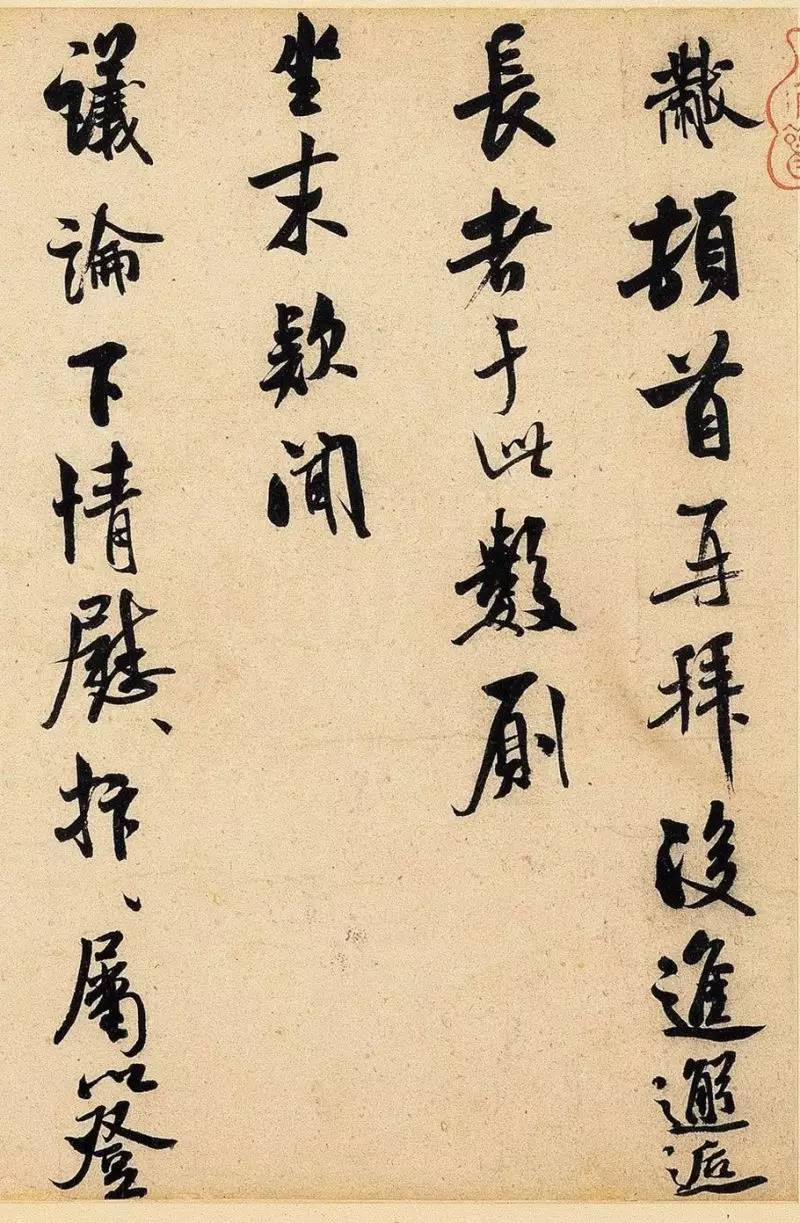 黻頓首再拜後進邂逅
長者于此數厠
坐末欵聞
議論下情慰、抃、屬以登